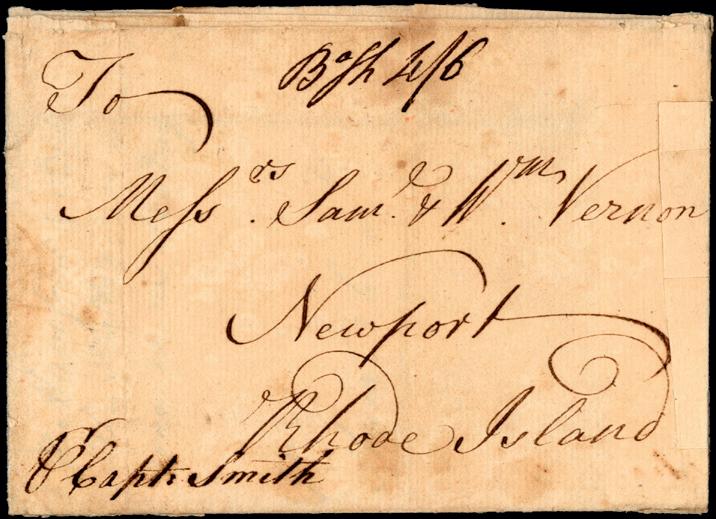 To
Bosh 4/6
Messrs. Saml. & Wm. Vernon
Newport
Rhode Island
Capt. Smith